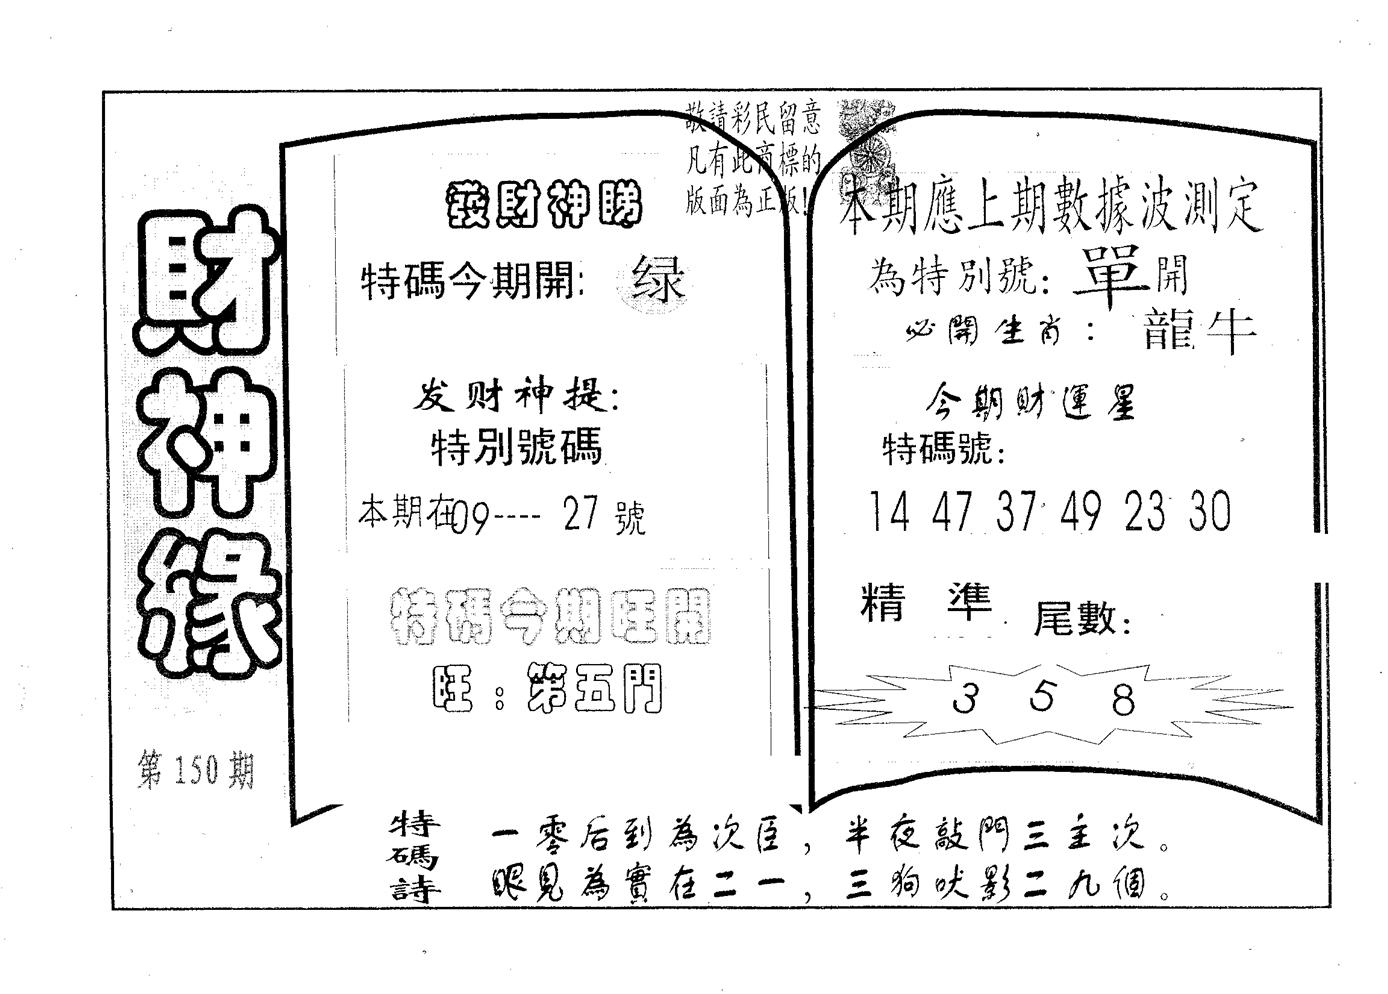 財神緣
第150期
敬請彩民留意
凡有此商標的
版面為正版!
發財神睇
特碼今期開: 绿
发财神提:
特別號碼
本期在09----27號
特碼今期旺開
旺:第五門
本期應上期數據波測定
為特別號: 單開
必開生肖: 龍牛
今期財運星
特碼號:
14 47 37 49 23 30
精準 尾數:
3 5 8
特碼詩
一零后到為次臣,半夜敲門三主次。
眼見為實在二一,三狗吠影二九個。